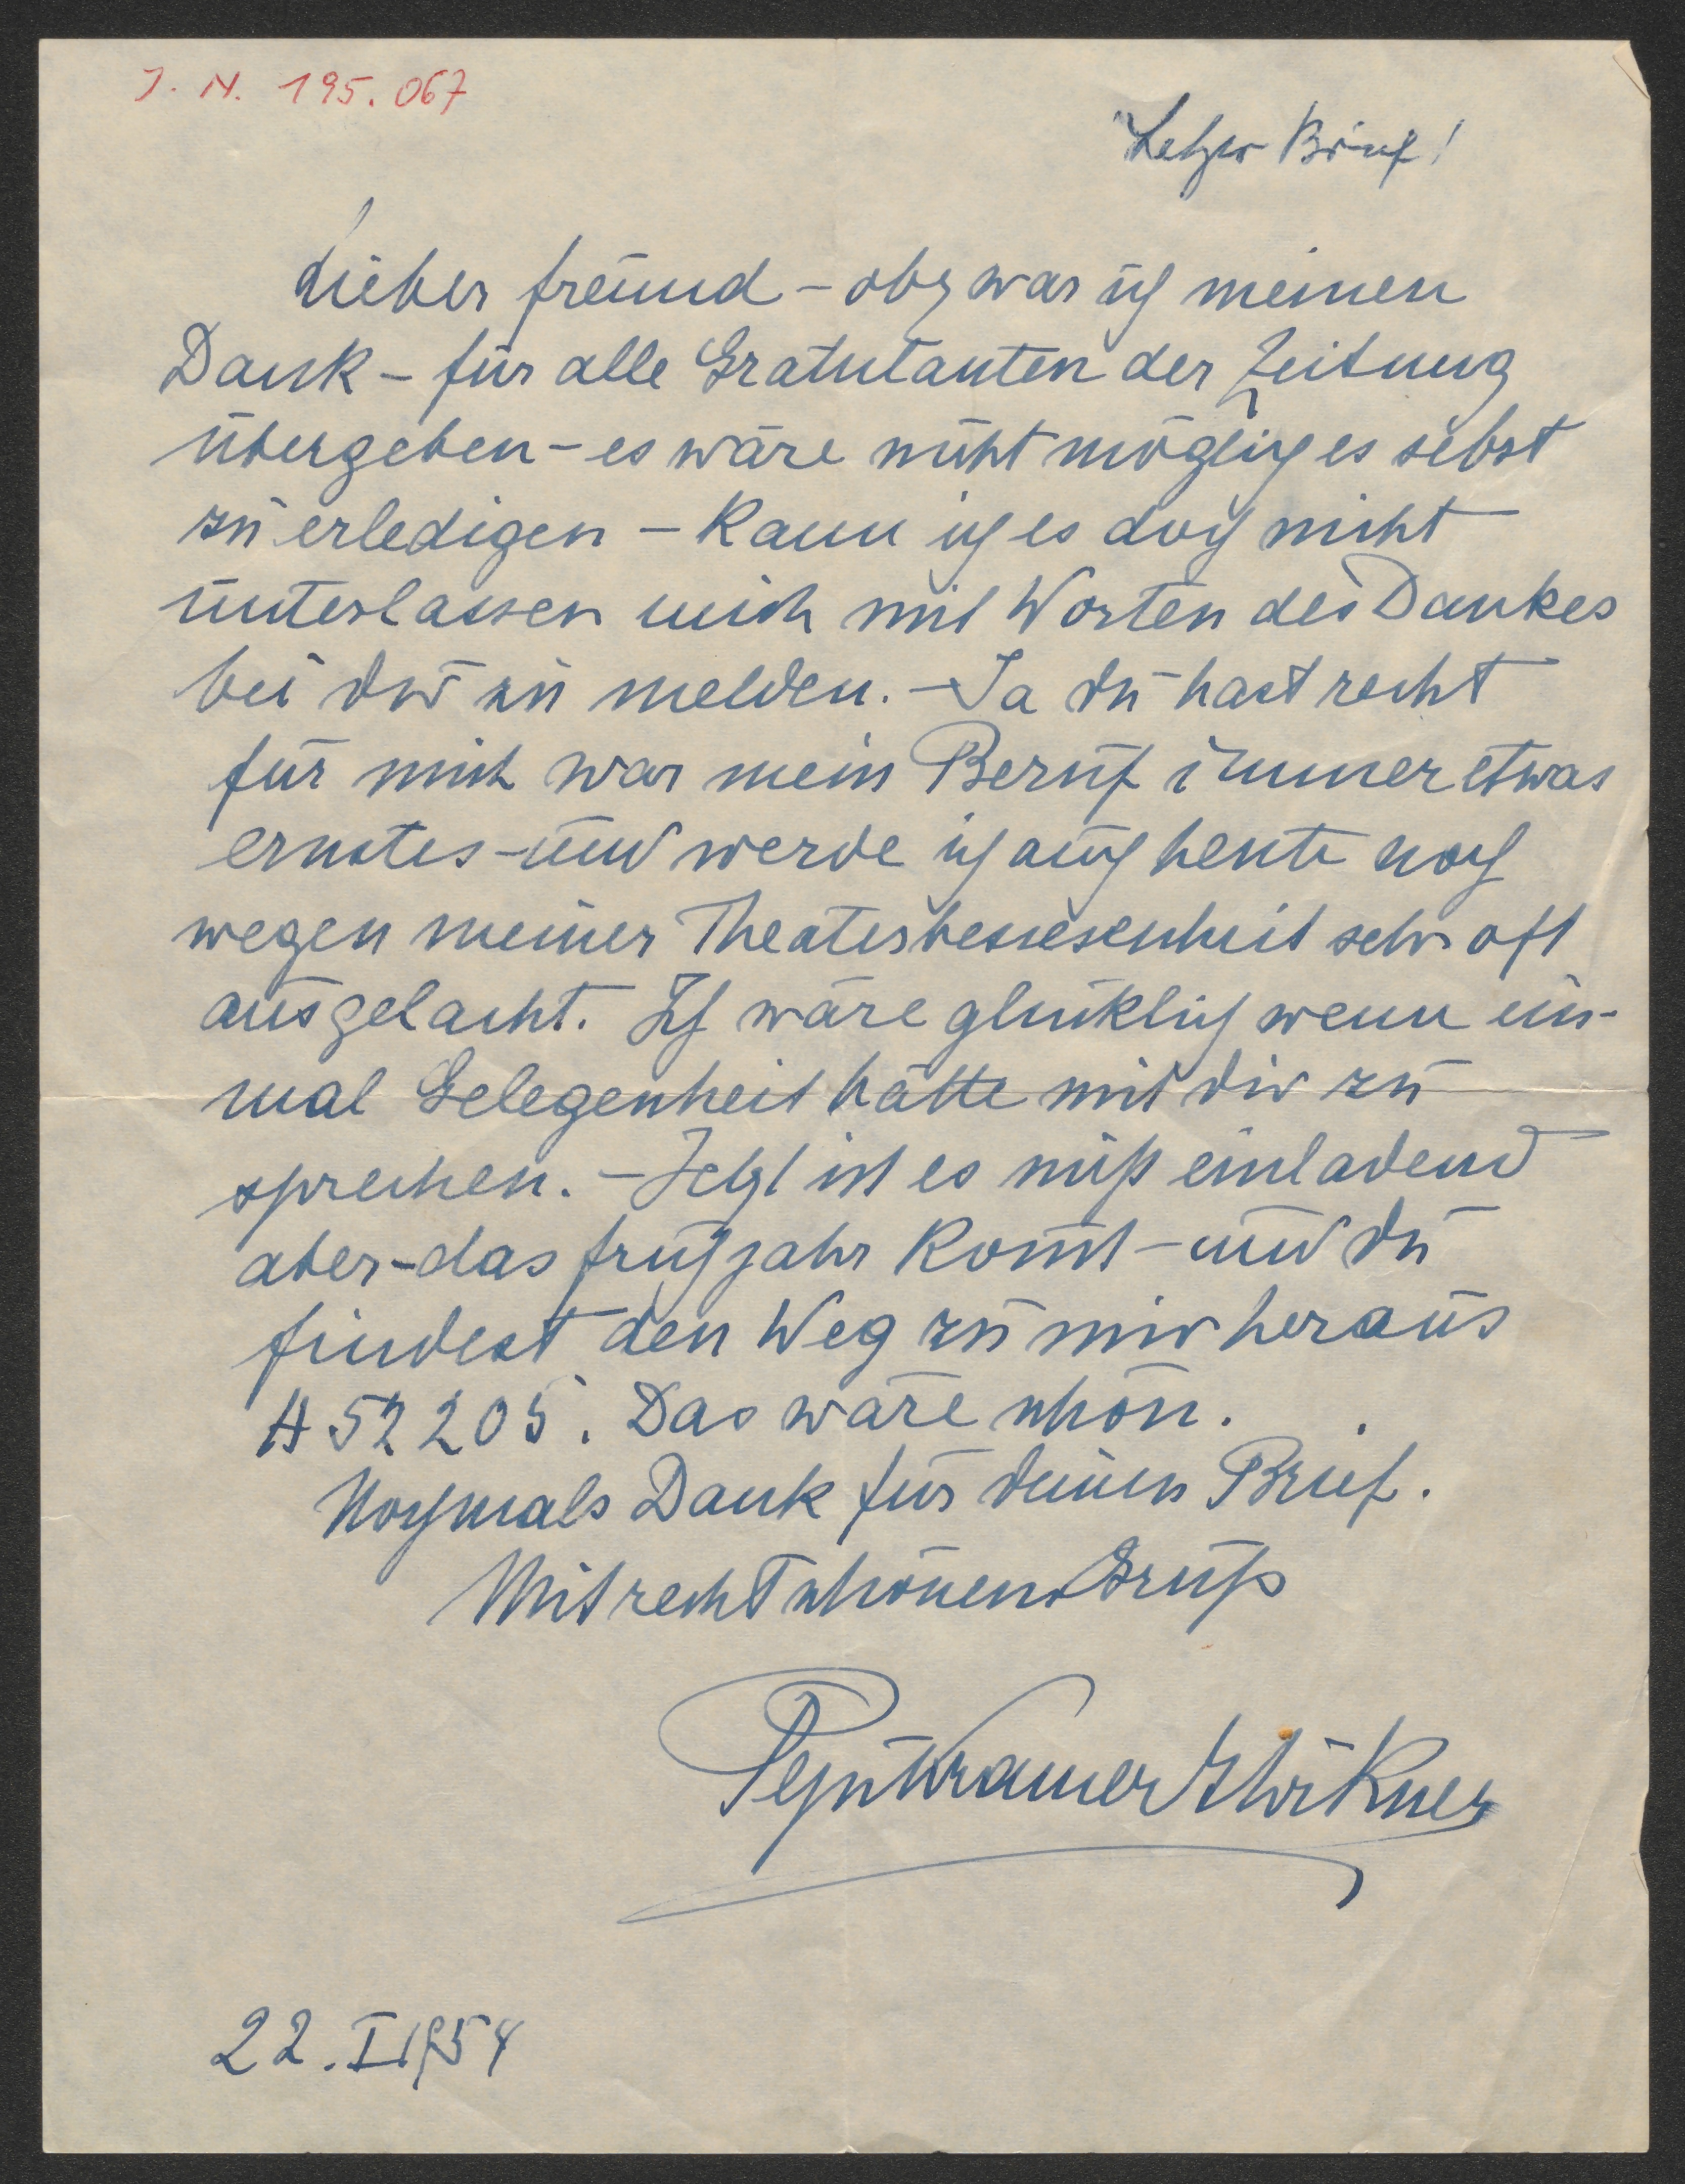 J. N. 195.067
Letzter Brief!
Lieber Freund – obzwar ich meinen
Dank – für alle Gratulanten der Zeitung
übergeben – es wäre nicht möglich es selbst
zu erledigen – kann ich es doch nicht
unterlassen mich mit Worten des Dankes
bei dir zu melden. – Ja du hast recht
für mich war mein Beruf immer etwas
ernstes – und werde ich auch heute noch
wegen meiner Theaterbesessenheit sehr oft
ausgelacht. Ich wäre glücklich wenn ein-
mal Gelegenheit hätte mit dir zu
sprechen. – Jetzt ist es nicht einladend
aber – das Frühjahr komt – und du
findest den Weg zu mir heraus
A 52 205. Das wäre schön.
Nochmals Dank für deinen Brief.
Mit recht schönen Gruß
Pepi Kramer Glöckner
22. I 1954